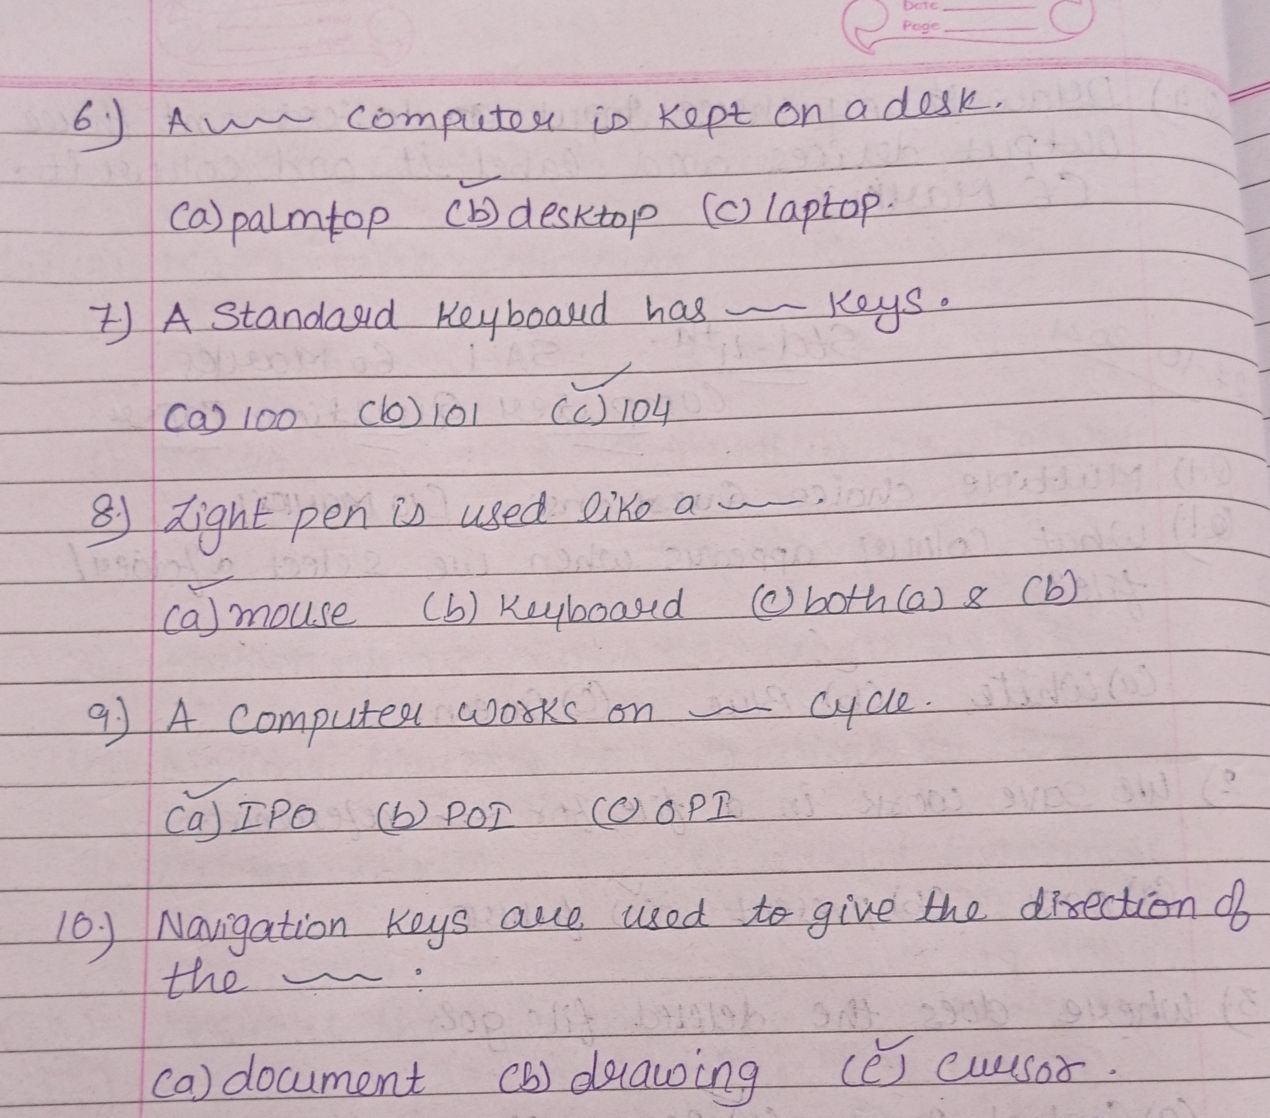 Date
Page
6.) A ___ computer is kept on a desk.
(a) palmtop (b) desktop (c) laptop.
7) A Standard Keyboard has ___ Keys.
(a) 100 (b) 101 (c) 104
8.) Light pen is used like a ___.
(a) mouse (b) Keyboard (c) both (a) & (b)
9.) A Computer works on ___ cycle.
(a) IPO (b) POI (c) OPI
10.) Navigation Keys are used to give the direction of
the ___ :
(a) document (b) drawing (c) cursor.